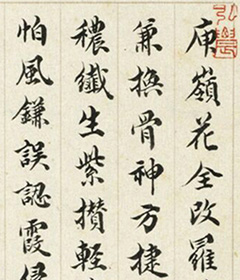 庾嶺花全改羅
兼換骨神方捷
穠纖生紫攢輕
怕風鎌誤認霞